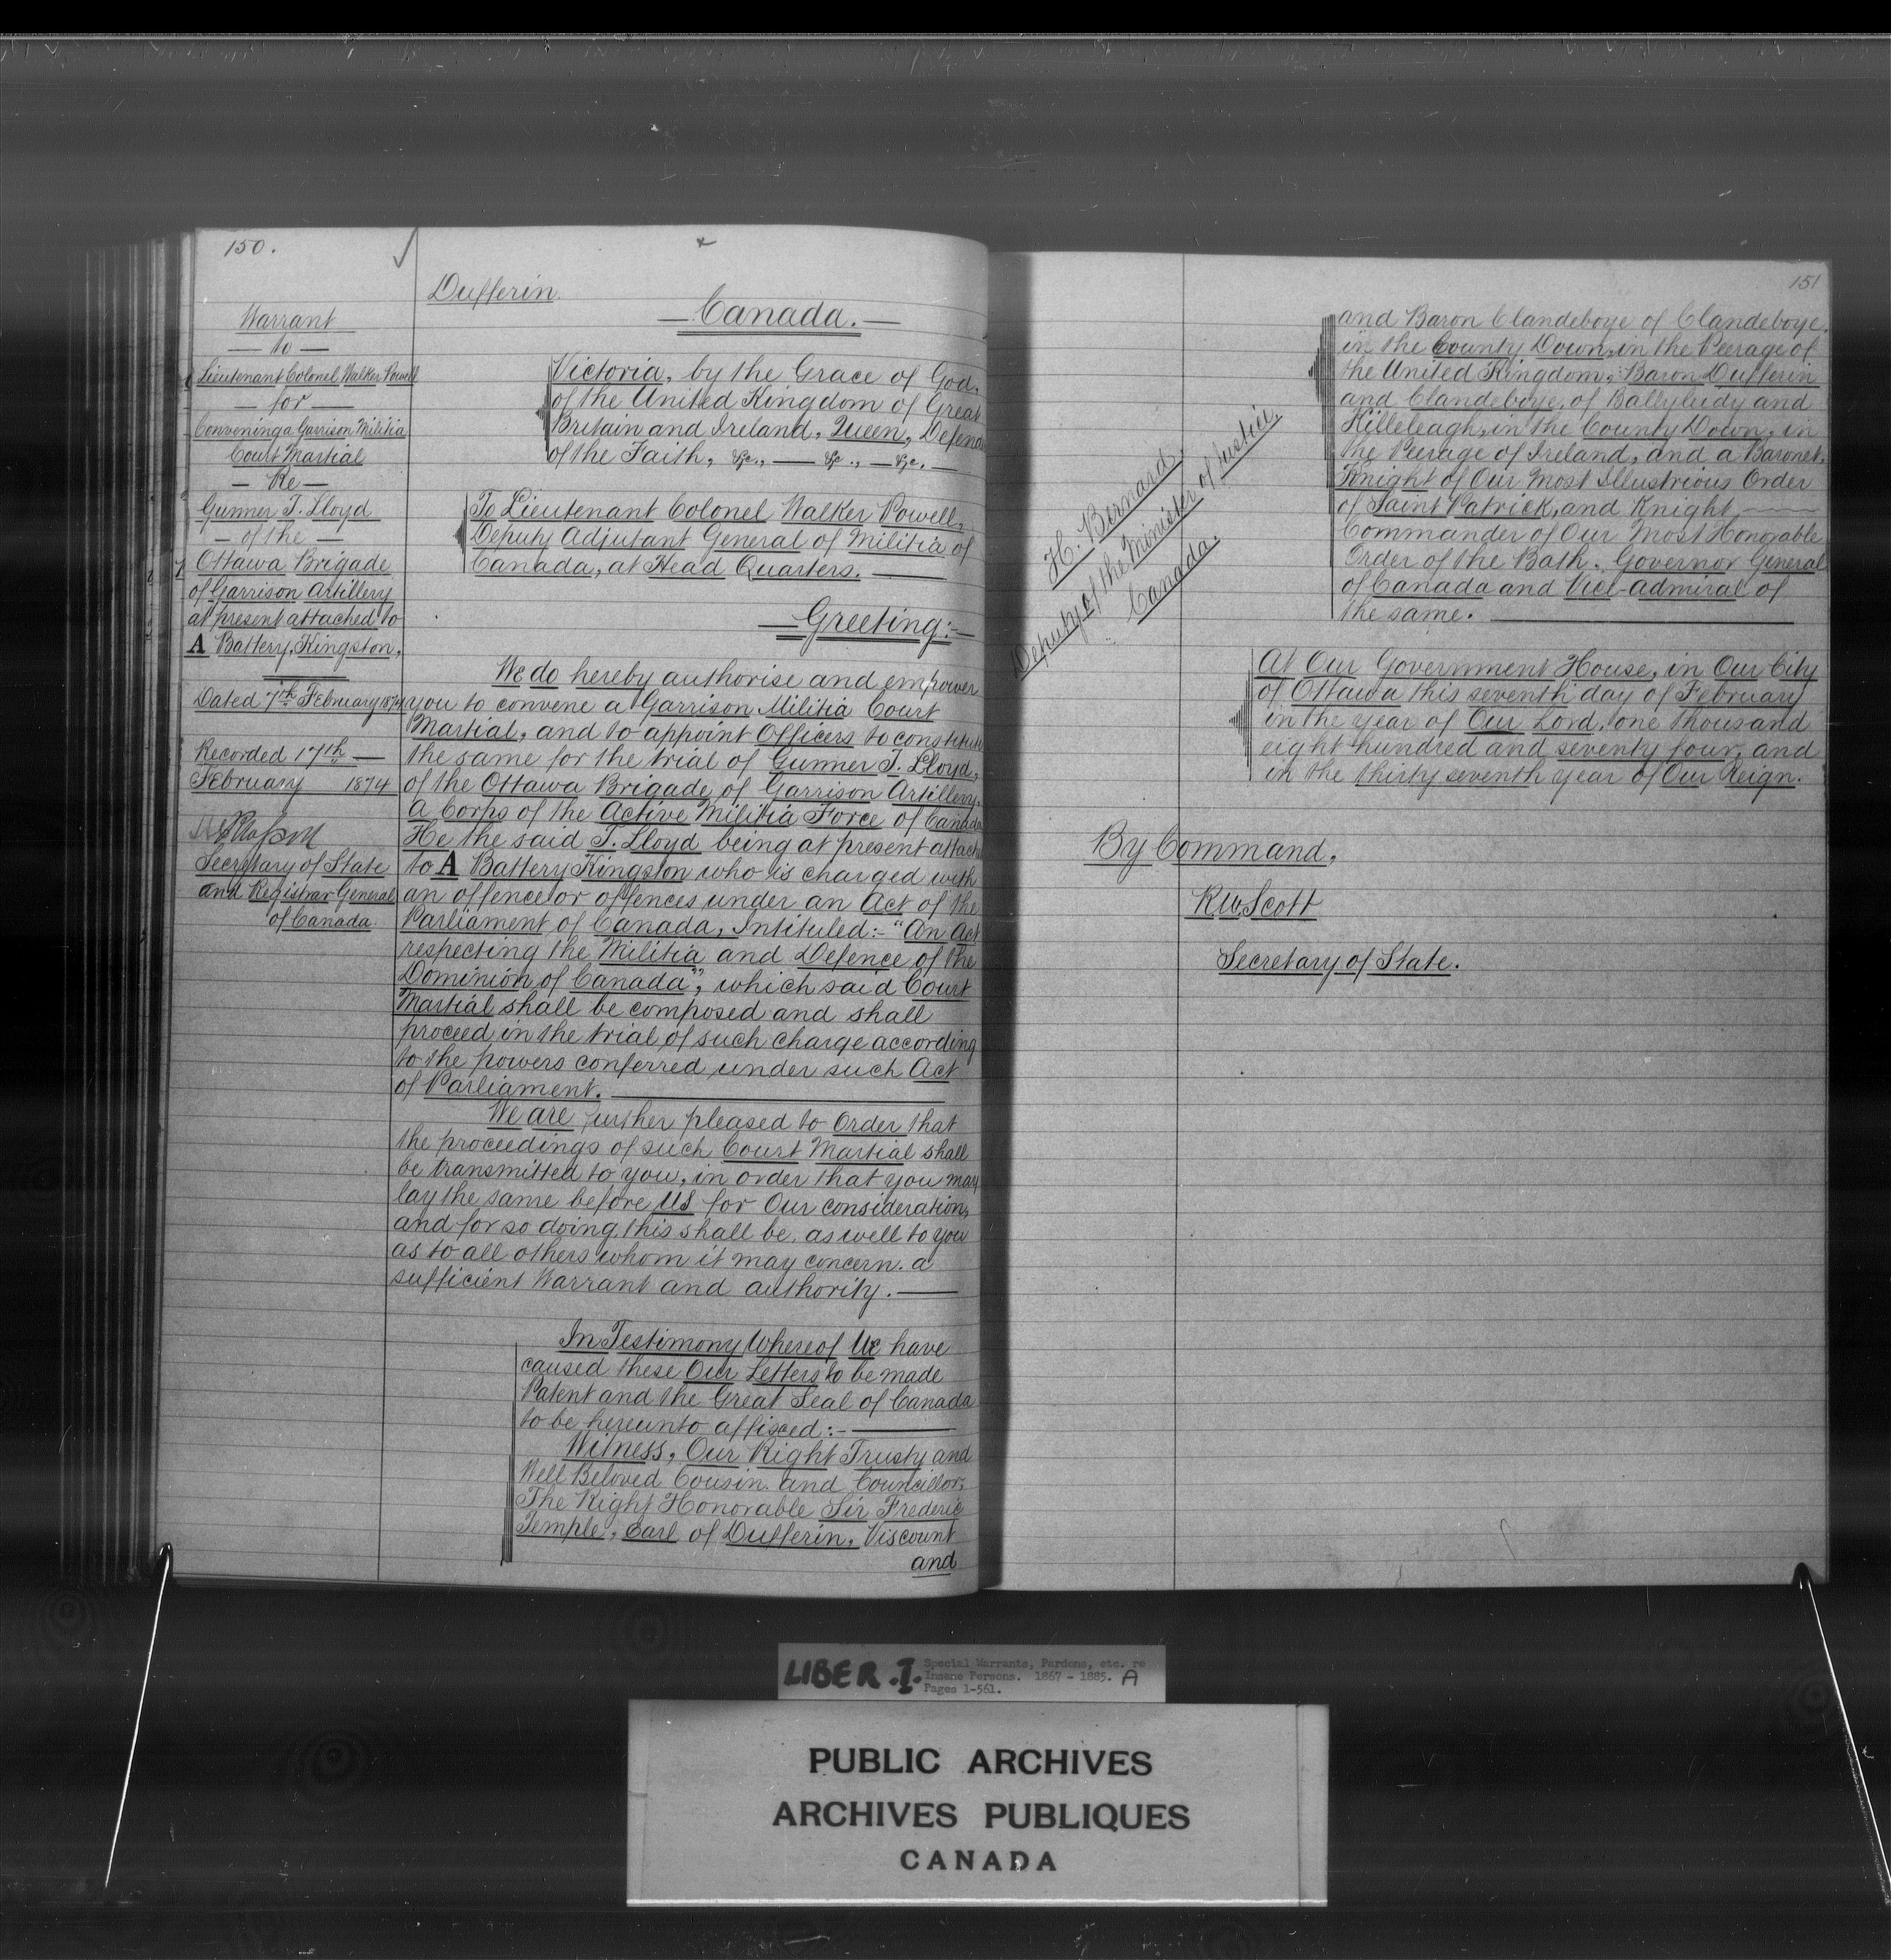 150.
Warrant
— to —
Lieutenant Colonel Walker Powell
— for —
Convening a Garrison Militia
Court Martial
— Re —
Gunner T. Lloyd
— of the —
Ottawa Brigade
of Garrison Artillery
at present attached to
A Battery, Kingston.
Dated 7th February 1874
Recorded 17th —
February 1874
Secretary of State
and Registrar General
of Canada.
Dufferin.
— Canada. —
Victoria, by the Grace of God,
of the United Kingdom of Great
Britain and Ireland, Queen, Defen
of the Faith, &c., — &c., — &c. —
To Lieutenant Colonel Walker Powell,
Deputy Adjutant General of Militia of
Canada, at Head Quarters. —
— Greeting: —
We do hereby authorise and empower
you to convene a Garrison Militia Court
Martial, and to appoint Officers to constitute
the same for the trial of Gunner T. Lloyd,
of the Ottawa Brigade of Garrison Artillery,
a Corps of the Active Militia Force of Canada
He the said T. Lloyd being at present attach
to A Battery Kingston who is charged with
an offence or offences under an Act of the
Parliament of Canada, Intituled:- "An Act
respecting the Militia and Defence of the
Dominion of Canada", which said Court
Martial shall be composed and shall
proceed in the trial of such charge according
to the powers conferred under such Act
of Parliament. —
We are further pleased to Order that
the proceedings of such Court Martial shall
be transmitted to you, in order that you may
lay the same before Us for Our consideration,
and for so doing, this shall be, as well to you
as to all others whom it may concern. a
sufficient Warrant and authority. —
In Testimony Whereof We have
caused these Our Letters to be made
Patent and the Great Seal of Canada
to be hereunto affixed:- —
Witness, Our Right Trusty and
Well Beloved Cousin and Councillor,
The Right Honorable Sir Frederic
Temple, Earl of Dufferin, Viscount
and
151
H. Bernard,
Deputy of the Minister of Justice,
Canada.
and Baron Clandeboye of Clandeboye,
in the County Down, in the Peerage of
the United Kingdom, Baron Dufferin
and Clandeboye, of Ballyleidy and
Killeleagh, in the County Down, in
the Peerage of Ireland, and a Baronet,
Knight of Our Most Illustrious Order
of Saint Patrick, and Knight —
Commander of Our Most Honorable
Order of the Bath. Governor General
of Canada and Vice-Admiral of
the same. —
At Our Government House, in Our City
of Ottawa this seventh day of February
in the year of Our Lord, one thousand
eight hundred and seventy four, and
in the thirty seventh year of Our Reign.
By Command,
R W Scott
Secretary of State.
LIBER.I. Special Warrants, Pardons, etc. re
Insane Persons. 1867 - 1885. A
Pages 1-561.
PUBLIC ARCHIVES
ARCHIVES PUBLIQUES
CANADA